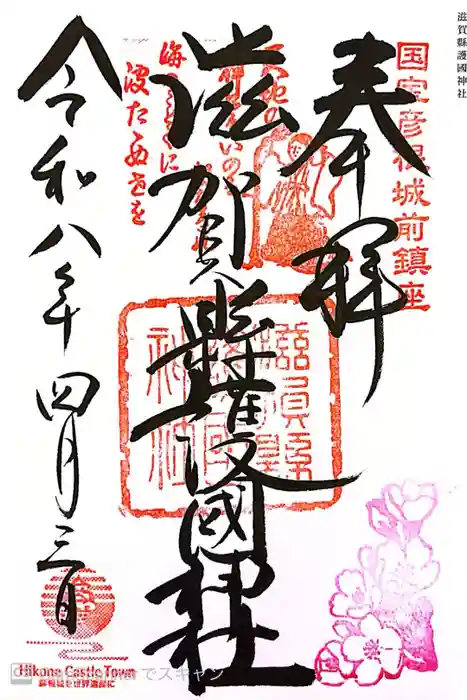 滋賀縣護國神社
奉拝
国宝彦根城前鎮座
滋賀縣護國神社
滋賀縣護國神社
令和八年四月三日
Hikone Castle Town
彦根城を世界遺産に
でスキャン